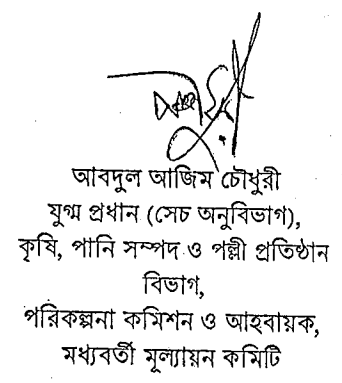 আবদুল আজিম চৌধুরী
যুগ্ম প্রধান (সেচ অনুবিভাগ),
কৃষি, পানি সম্পদ ও পল্লী প্রতিষ্ঠান
বিভাগ,
পরিকল্পনা কমিশন ও আহবায়ক,
মধ্যবর্তী মূল্যায়ন কমিটি